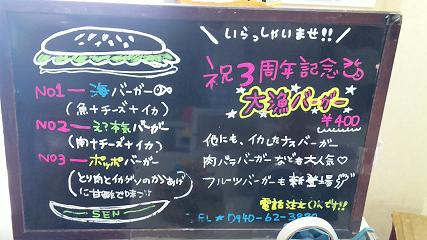 いらっしゃいませ!!
祝3周年記念
大漁バーガー
¥400
NO1ー海バーガー
(魚+チーズ+イカ)
NO2ーえ?本気バーガー
(肉+チーズ+イカ)
NO3ーポッポバーガー
(とり肉とイカゲソのからあげ
に甘酢で味つけ
SEN
他にも、イカしたナスバーガー
肉バラバーガーなども大人気♡
フルーツバーガーも新登場
電話注文OKんです!!
TEL★0940-62-3880